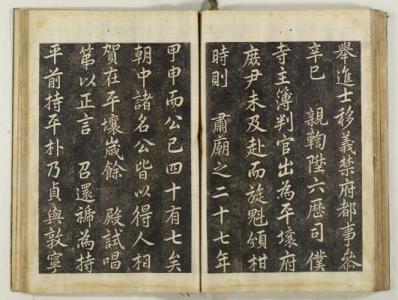 舉進士移義禁府都事叅
辛巳 親鞫陞六歷司僕
寺主簿判官出為平壤府
庶尹未及赴而旋魁頒柑
時則 肅廟之二十七年
甲申而公已四十有七矣
朝中諸名公皆以得人相
賀在平壤歲餘 殿試唱
第以正言 召還褫為持
平前持平朴乃貞與敦寧